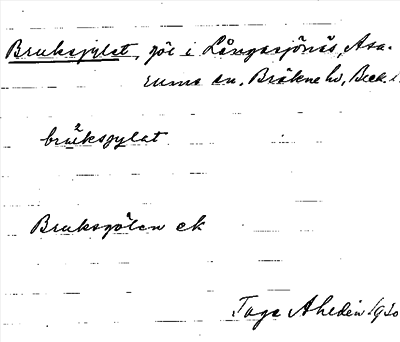 Bruksjylet, göl i Långasjönäs, Asa-
rums sn. Bräkne hd, Bleck. l.
bruksgylet
Bruksgölen ek
Tage Ahldén 1930